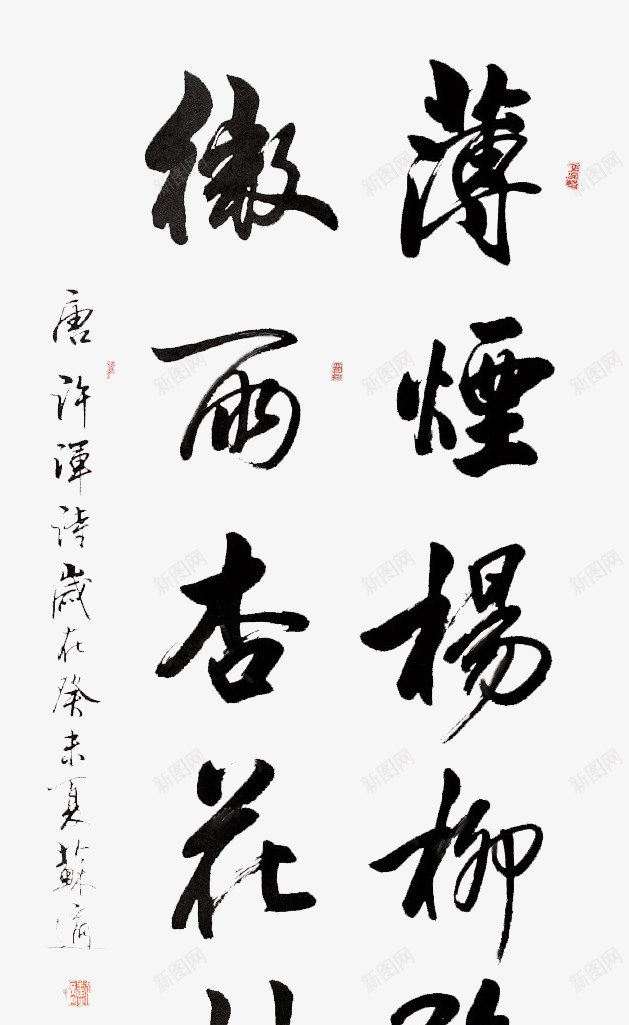 薄煙楊柳路
微雨杏花村
唐許渾詩歲在癸未夏蘇適
新图网